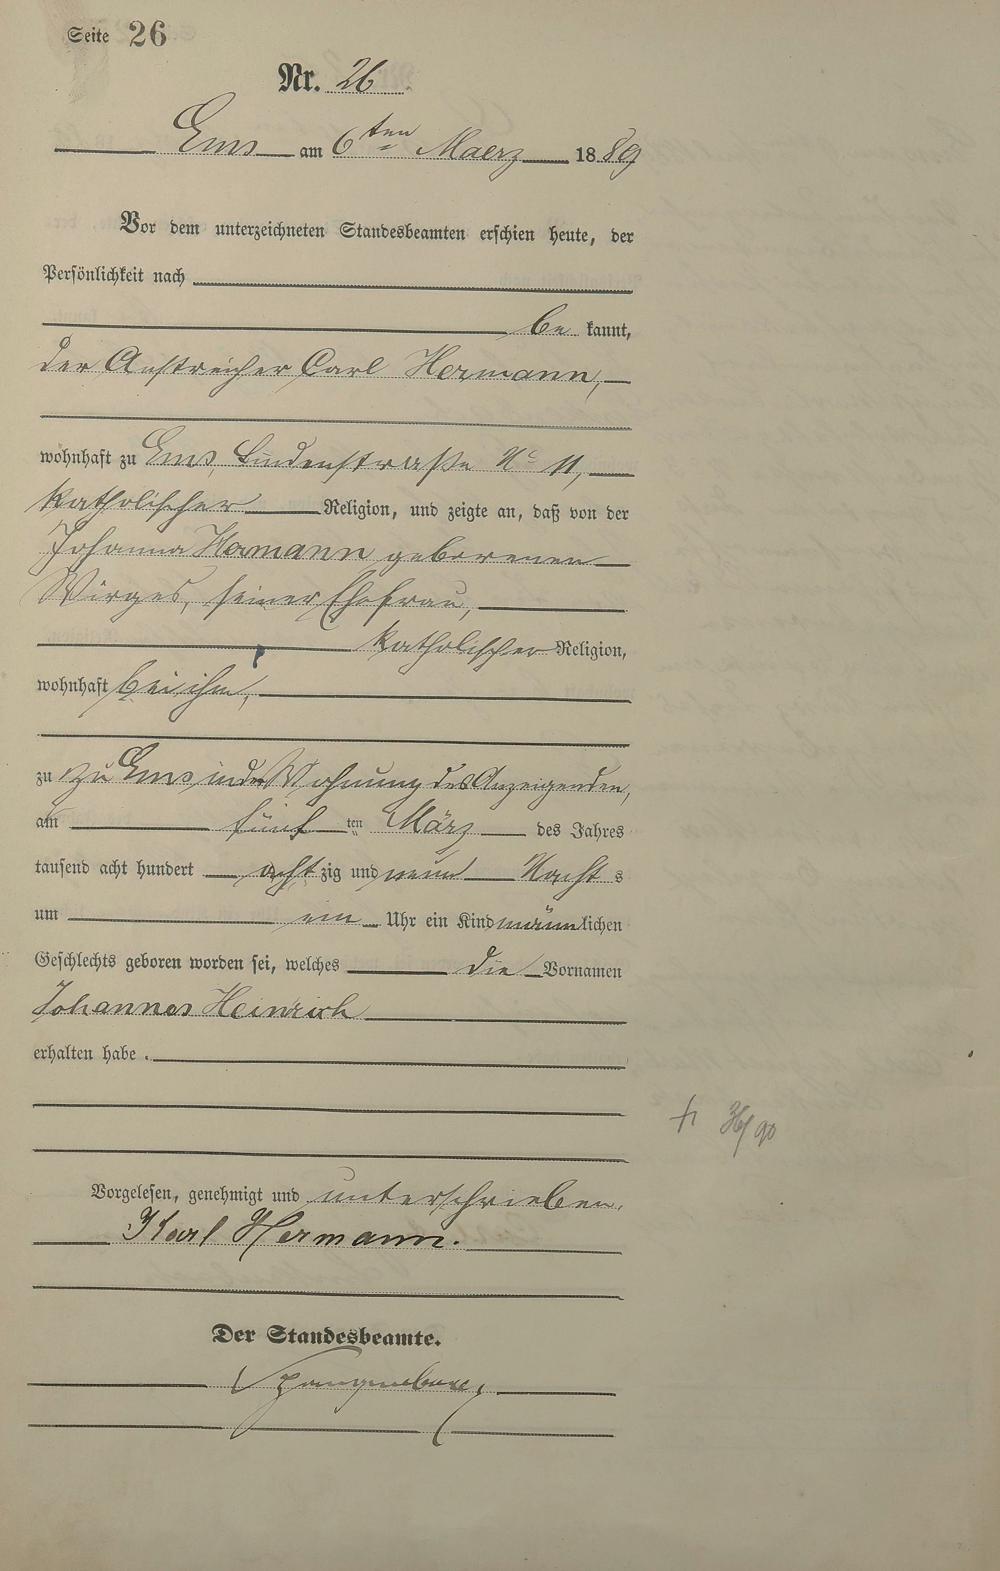 Seite 26
Nr. 26
Ems am 6ten Maerz 1889
Vor dem unterzeichneten Standesbeamten erschien heute, der
Persönlichkeit nach
be kannt,
der Anstreicher Carl Hermann,
wohnhaft zu Ems, Lindenstraße No 11,
katholischer Religion, und zeigte an, daß von der
Johanna Hermann geborenen
Wirges, seiner Ehefrau,
katholischer Religion,
wohnhaft bei ihm,
zu zu Ems in der Wohnung des Anzeigenden,
am fünf ten März des Jahres
tausend acht hundert acht zig und neun Nacht s
um ein Uhr ein Kind männlichen
Geschlechts geboren worden sei, welches die Vornamen
Johannes Heinrich
erhalten habe.
Vorgelesen, genehmigt und unterschrieben.
Karl Hermann.
Der Standesbeamte.